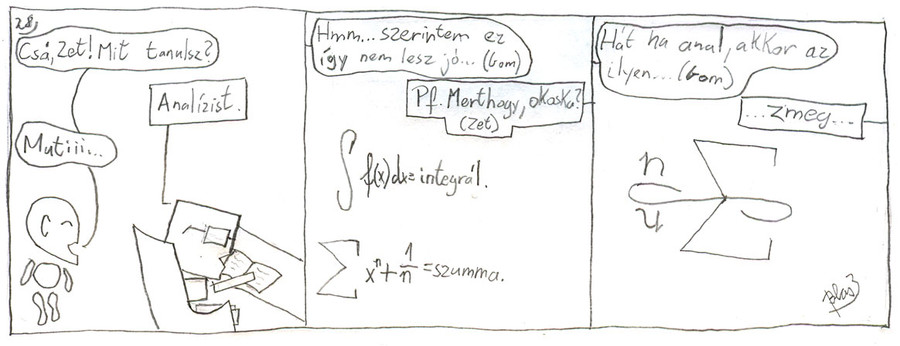 28,
Csá, Zet! Mit tanulsz?
Analízist.
Mutiii...
Hmm... szerintem ez
így nem lesz jó... (Gom)
Pf. Merthogy, okoska?
(Zet)
∫ f(x)dx = integrál.
∑ xⁿ + 1/n = szumma.
Hát ha anal, akkor az
ilyen... (Gom)
...zmeg...
n
u